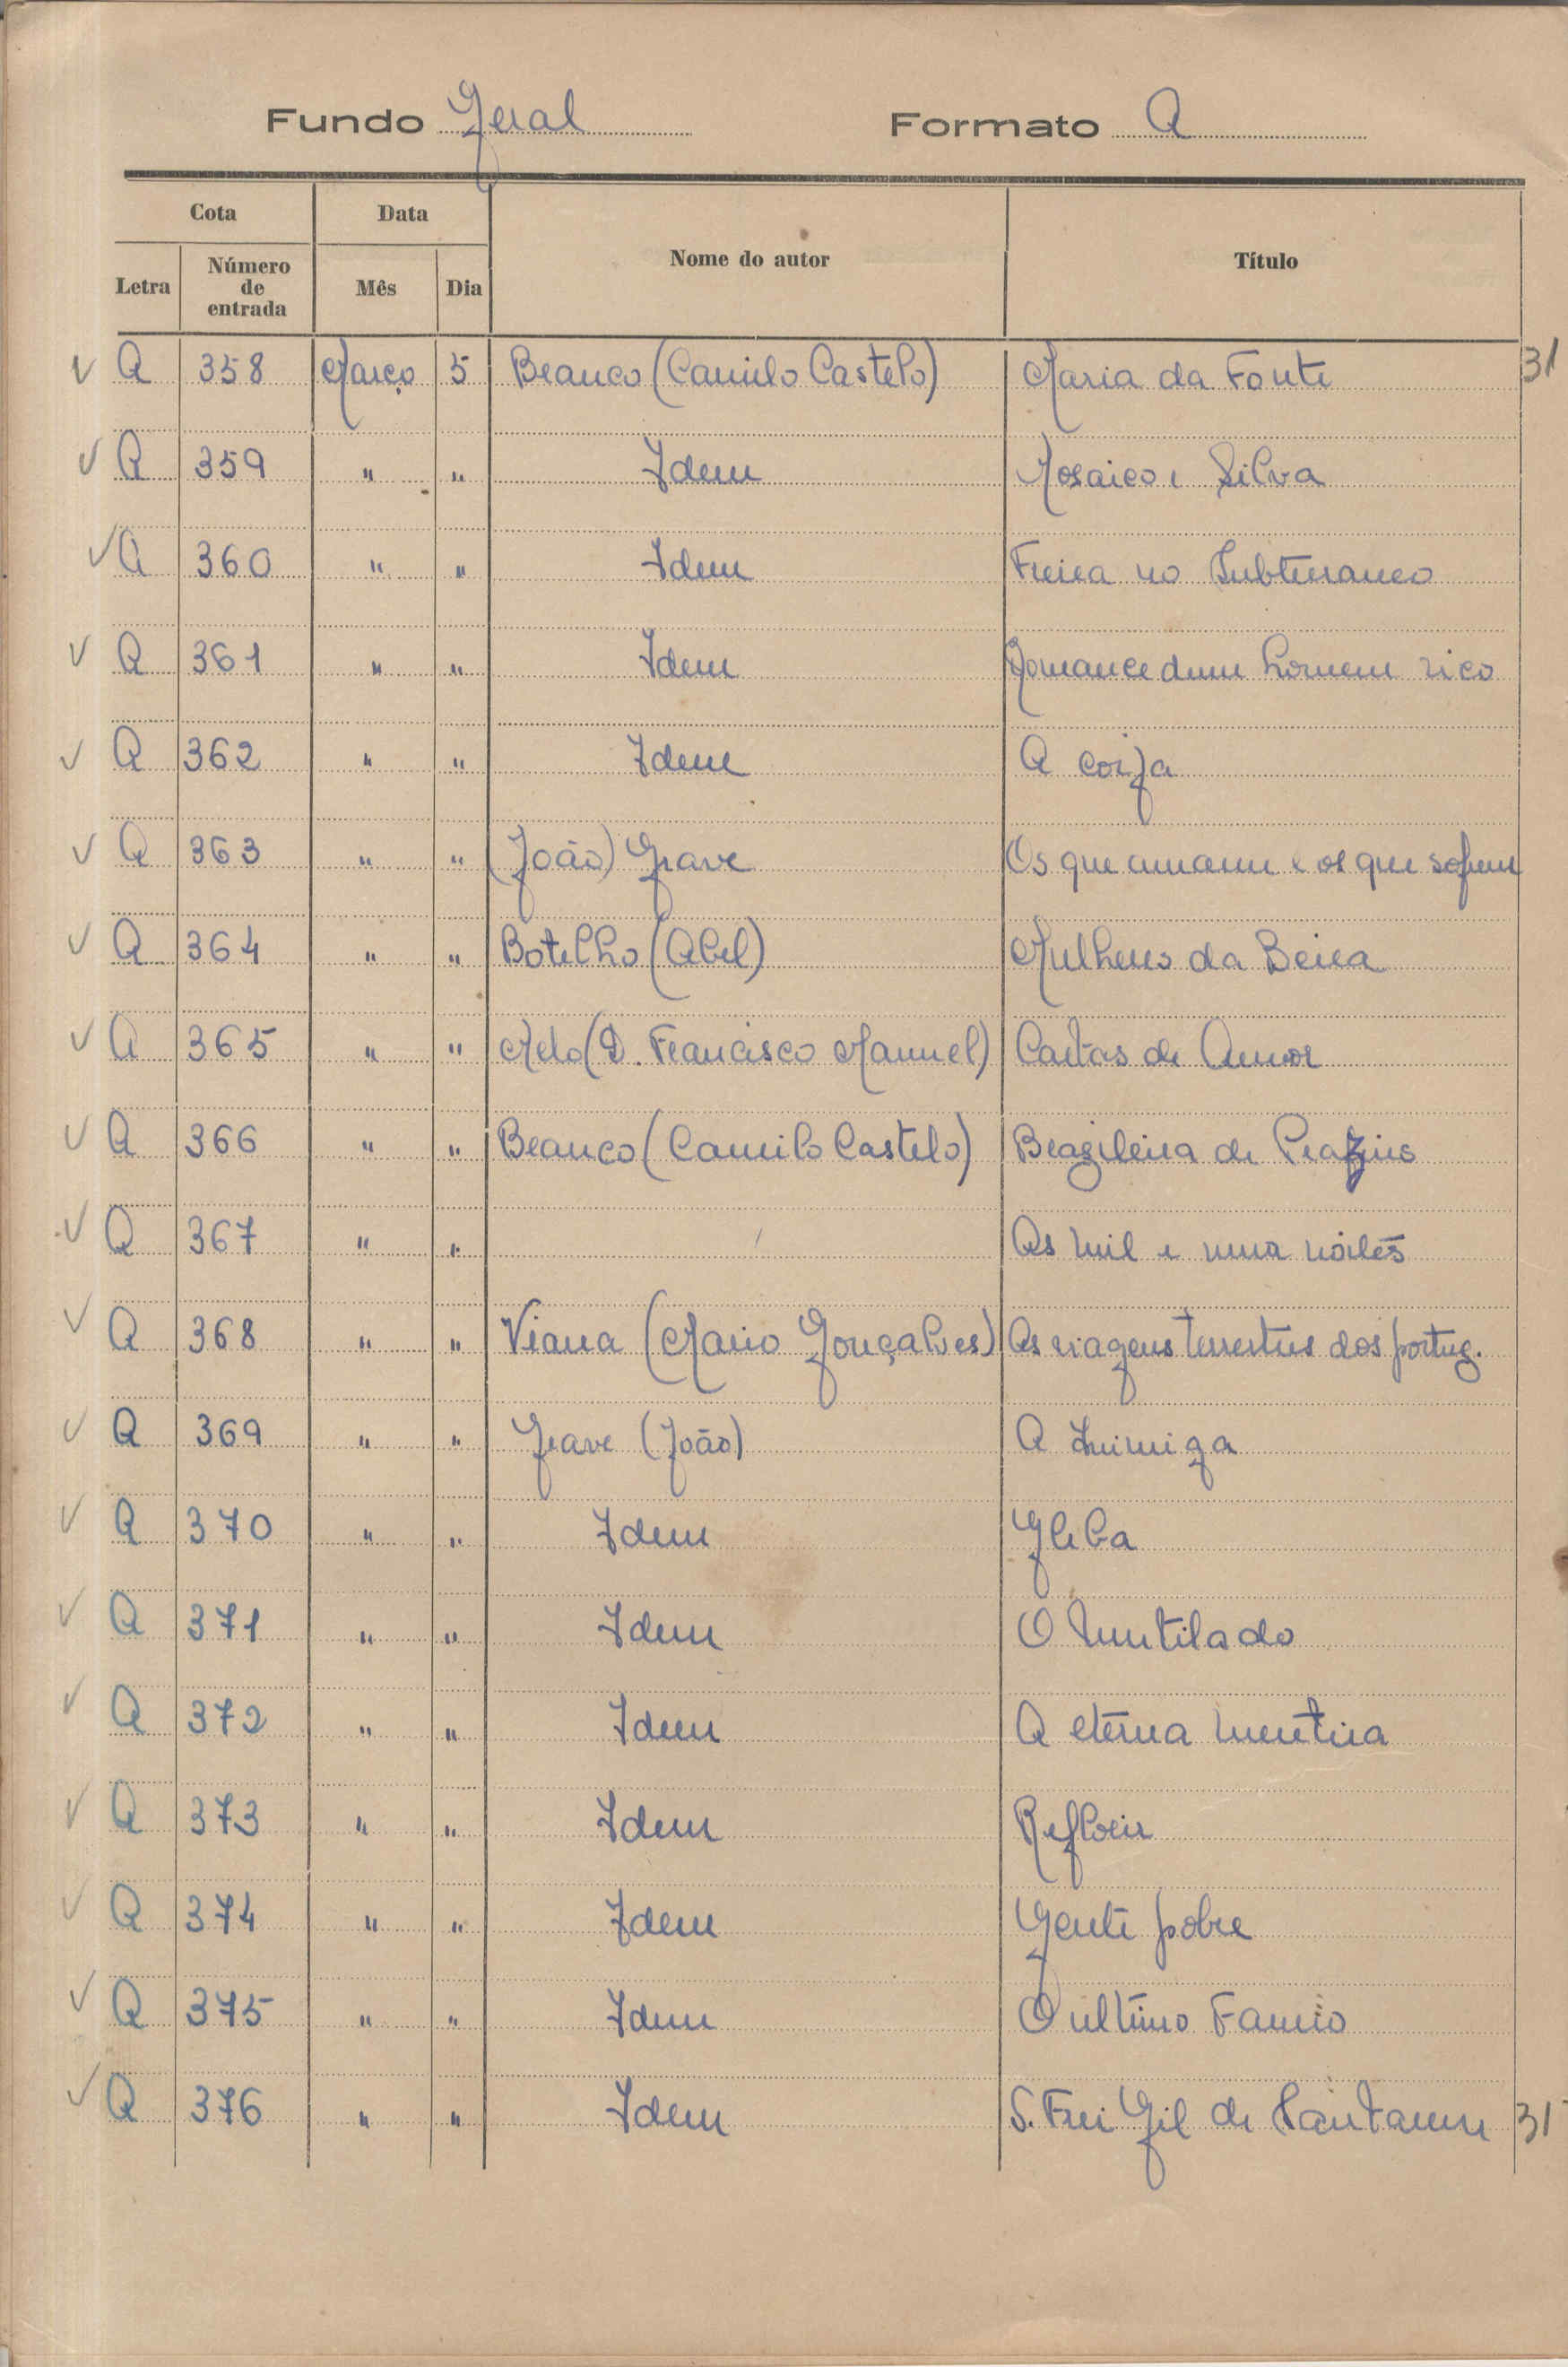 Fundo Geral Formato A
Cota Data Nome do autor Título
Letra Número de entrada Mês Dia
A 358 Março 5 Branco (Camilo Castelo) Maria da Fonte 31
A 359 " " Idem Mosaico e Silva
A 360 " " Idem Freira no Subterraneo
A 361 " " Idem Romance dum homem rico
A 362 " " Idem A corja
A 363 " " (João) Grave Os que amam e os que sofrem
A 364 " " Botelho (Abel) Mulheres da Beira
A 365 " " Melo (D. Francisco Manuel) Cartas de Amor
A 366 " " Branco (Camilo Castelo) Brazileira de Prazins
A 367 " " As mil e uma noites
A 368 " " Viana (Mario Gonçalves) As viagens terrestres dos portug.
A 369 " " Grave (João) A Inimiga
A 370 " " Idem Gleba
A 371 " " Idem O Mutilado
A 372 " " Idem A eterna mentira
A 373 " " Idem Reflorir
A 374 " " Idem Gente pobre
A 375 " " Idem O ultimo Fauno
A 376 " " Idem S. Frei Gil de Santarem 31